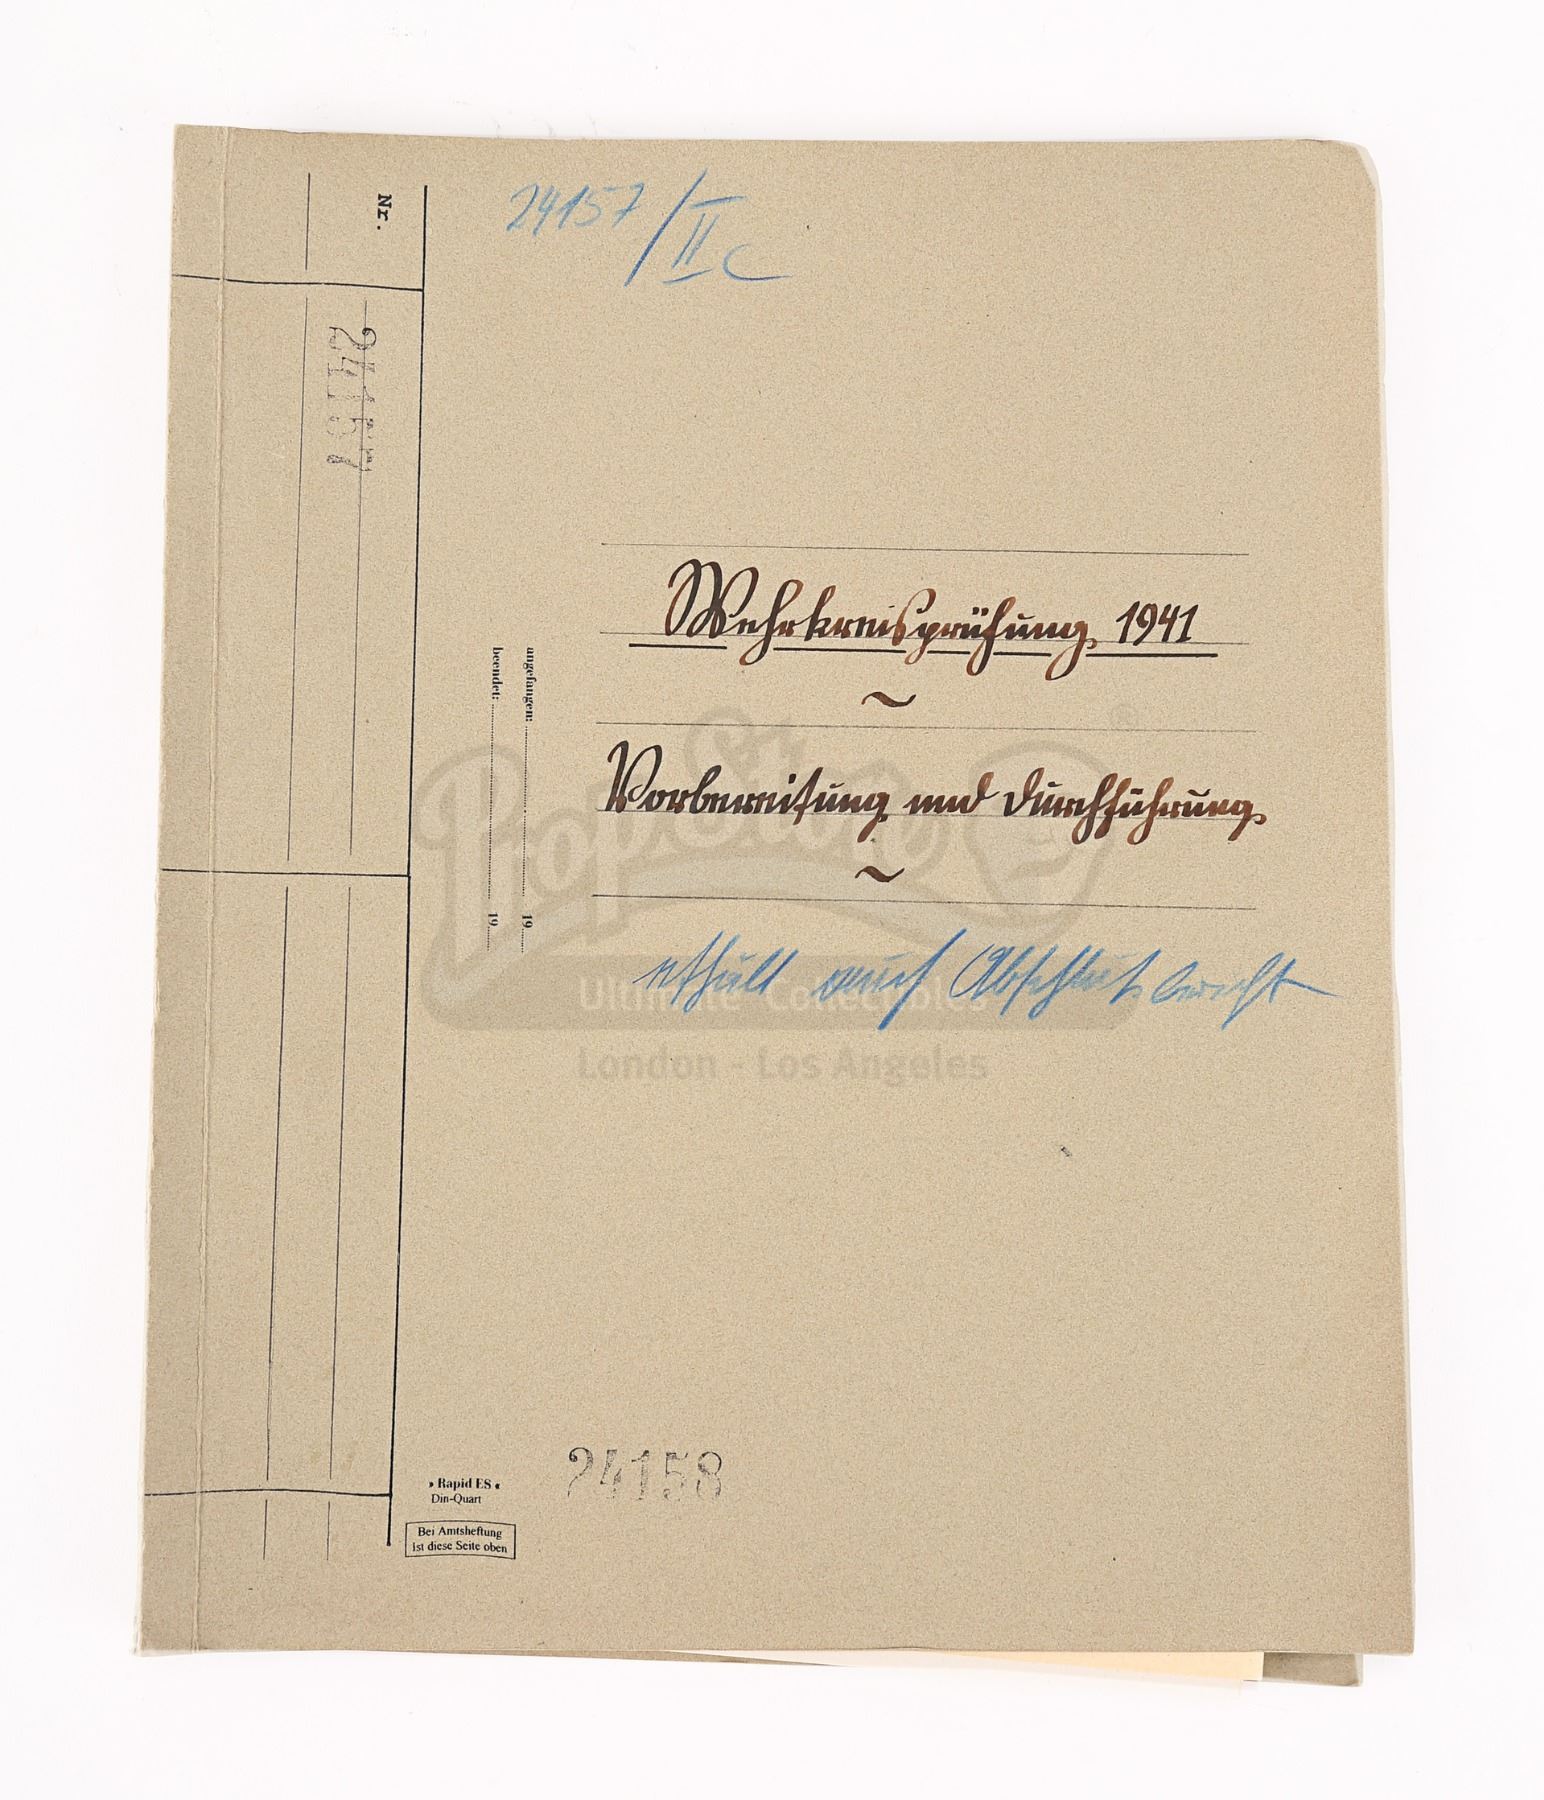 24157/IIc
Nr.
24157
Wehrkreisprüfung 1941
~
angefangen: 19
beendet: 19
Vorbereitung und Durchführung
~
enthält auch Abschlußbericht
PropStore
®
Ultimate Collectibles
London - Los Angeles
24158
» Rapid ES «
Din-Quart
Bei Amtsheftung
ist diese Seite oben